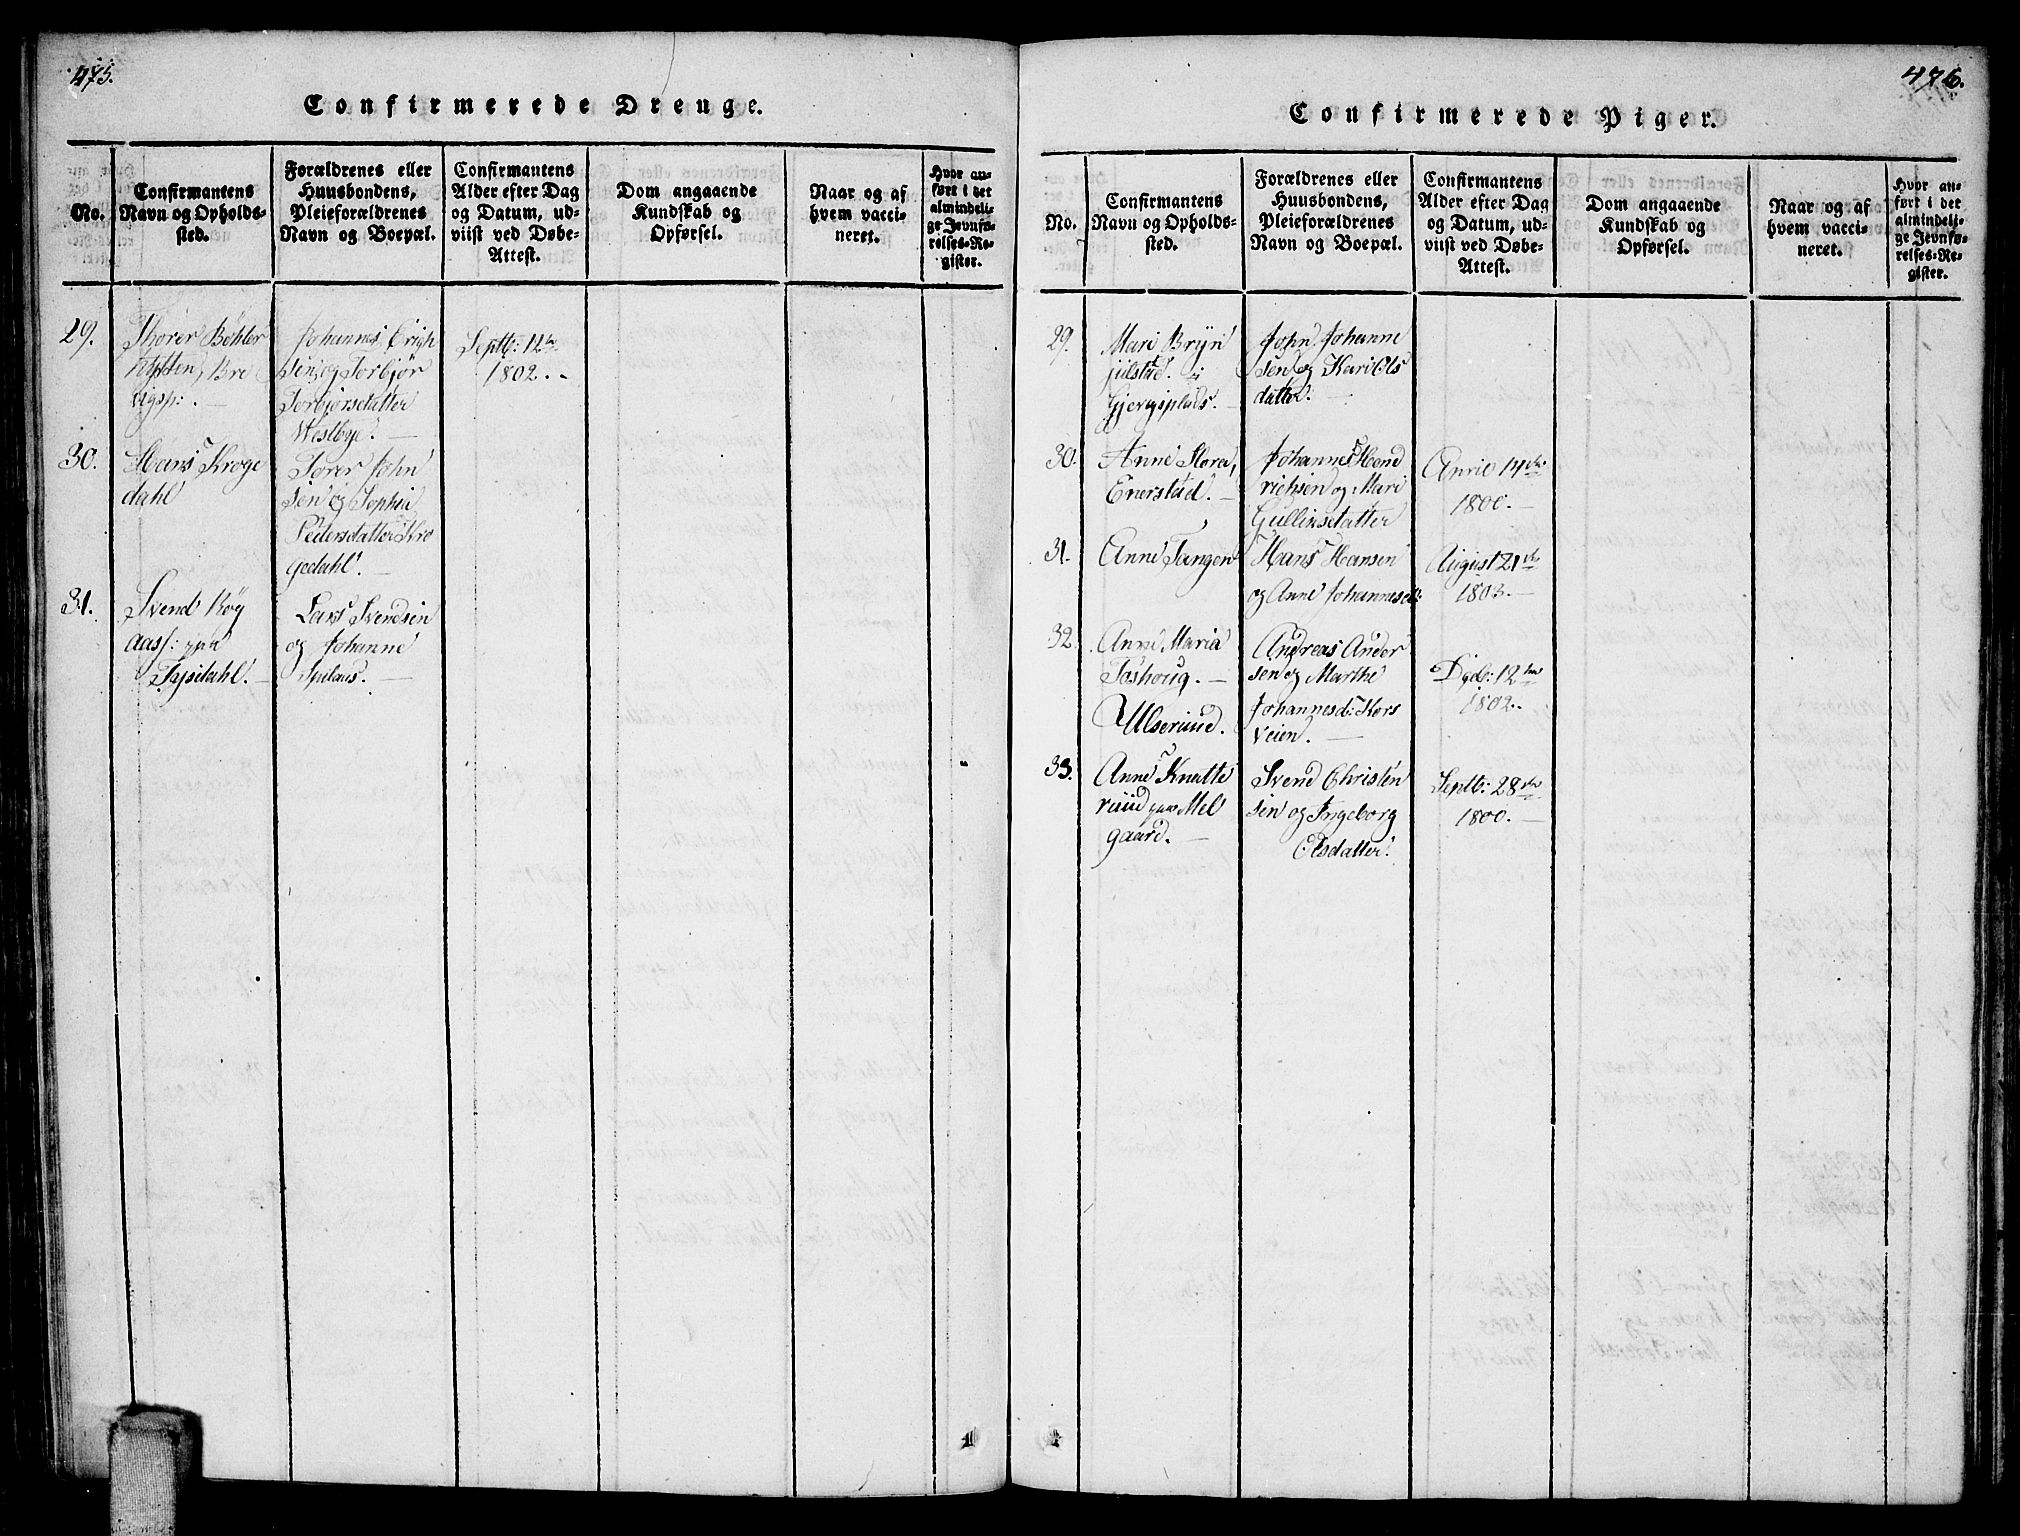 475.
Confirmerede Drenge.
No.
Confirmantens
Navn og Opholds-
sted.
Forældrenes eller
Huusbondens,
Pleieforældrenes
Navn og Boepæl.
Confirmantens
Alder efter Dag
og Datum, ud-
viist ved Døbe-
Attest.
Dom angaaende
Kundskab og
Opførsel.
Naar og af
hvem vacci-
neret.
Hvor an-
ført i det
almindeli-
ge Jevnfø-
relses-Re-
gister.
29.
Thorer Böhler
hytten, Bre
vigsp: . —
Johannes Erich
sen og Torbjör
Torbjörsdatter
Westbye. —
Septb: 12te
1802. -
30.
Hans Kroge
dahl
Torer John
sen og Sophia
Pedersdatter Kro
gedahl. —
31.
Svend
aas: paa
Lars Svendsen
og Johanne
476.
Confirmerede Piger.
No.
Confirmantens
Navn og Opholds-
sted.
Forældrenes eller
Huusbondens,
Pleieforældrenes
Navn og Boepæl.
Confirmantens
Alder efter Dag
og Datum, ud-
viist ved Døbe-
Attest.
Dom angaaende
Kundskab og
Opførsel.
Naar og af
hvem vacci-
neret.
Hvor an-
ført i det
almindeli-
ge Jevnfø-
relses-Re-
gister.
29.
Mari Bryn
julstad.
John Johanne
sen og Kari Ols
datter. —
30.
Anne Flora,
Enerstad. —
Johannes Hend
richsen og Mari
Gullinsdatter
14de
1800. —
31.
Anne Tangen
Hans Hansen
og Anne Johannesd:
August 21de
1803. —
32.
Anne Maria
Toshoug. —
Ulserüud.
Andreas Ander
sen og Marthe
Johannesd: Kors
veien. —
12te
1802. -
33.
Anne Knatte
rüud paa Mel
gaard. —
Svend Christen
sen og Ingeborg
Olsdatter.
Septb: 28de
1800. —